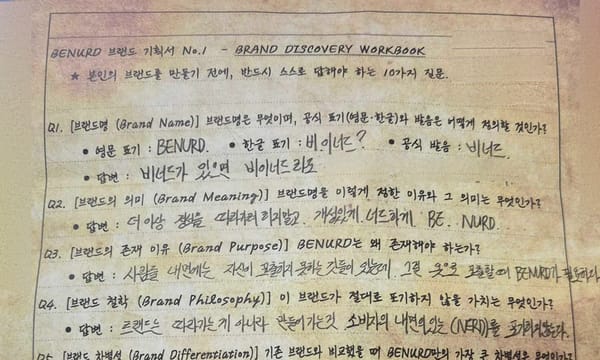 BENURD 브랜드 기획서 No.1 - BRAND DISCOVERY WORKBOOK
★ 본인의 브랜드를 만들기 전에, 반드시 스스로 답해야 하는 10가지 질문.
Q1. [브랜드명 (Brand Name)] 브랜드명은 무엇이며, 공식 표기(영문·한글)와 발음은 어떻게 정의할 것인가?
• 영문 표기 : BENURD. • 한글 표기 : 비이너드? • 공식 발음 : 비너드.
• 답변 : 비너드가 있으면 비이너드로
Q2. [브랜드의 의미 (Brand Meaning)] 브랜드명을 이렇게 정한 이유와 그 의미는 무엇인가?
• 답변 : 더이상 정상을 따라하려 하지말고 개성있게 너드하게 BE. NURD.
Q3. [브랜드의 존재 이유 (Brand Purpose)] BENURD는 왜 존재해야 하는가?
• 답변 : 사람들 내면에는 자신이 표출하지 못하는 것들이 있는데 그걸 옷으로 표출할때 BENURD가 필요하다
Q4. [브랜드 철학 (Brand Philosophy)] 이 브랜드가 절대로 포기하지 않을 가치는 무엇인가?
• 답변 : 트랜드는 따라가는게 아니라 만들어가는것 소비자의 내면의있는 (NERD)를 포기하지않는다.
Q5. [브랜드 차별성 (Brand Differentiation)] 기존 브랜드와 비교했을 때 BENURD만의 가장 큰 차별성은 무엇인가?